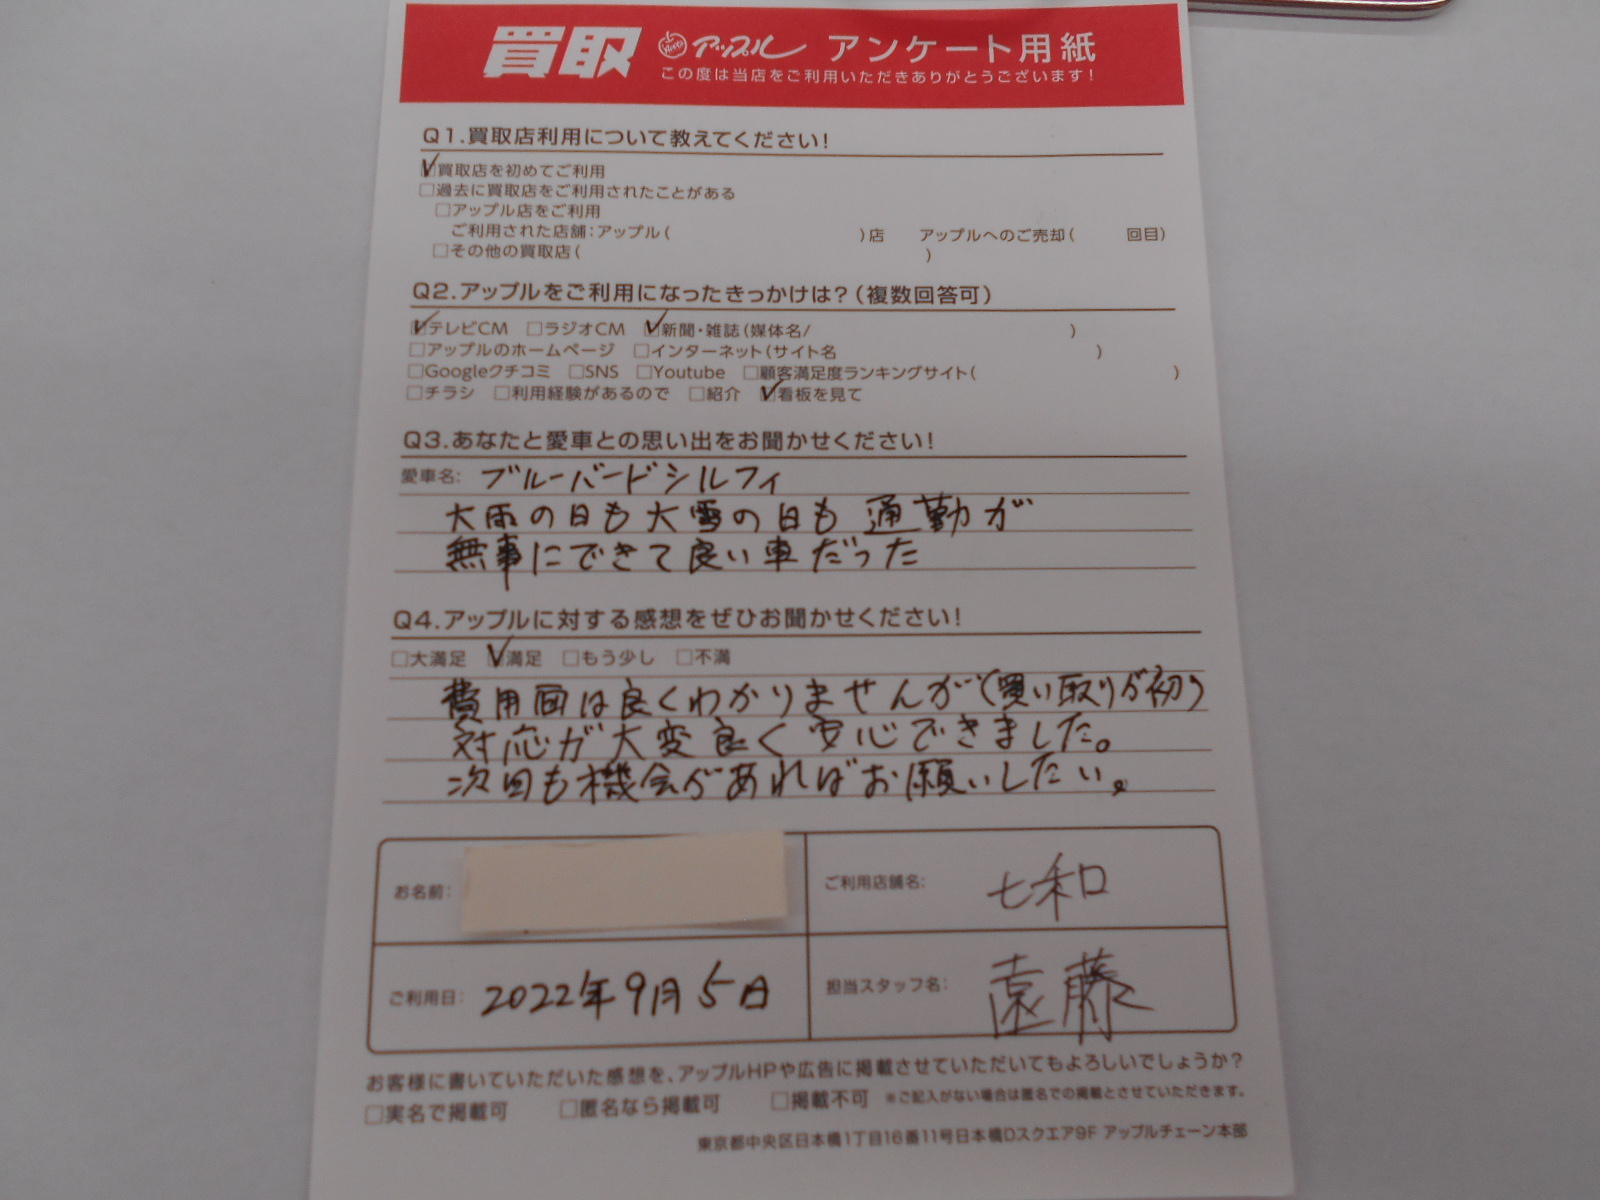 買取 アップル アンケート用紙
この度は当店をご利用いただきありがとうございます!
Q1.買取店利用について教えてください!
☑買取店を初めてご利用
□過去に買取店をご利用されたことがある
□アップル店をご利用
ご利用された店舗:アップル( )店 アップルへのご売却( 回目)
□その他の買取店( )
Q2.アップルをご利用になったきっかけは?(複数回答可)
☑テレビCM □ラジオCM ☑新聞・雑誌(媒体名/ )
□アップルのホームページ □インターネット(サイト名 )
□Googleクチコミ □SNS □Youtube □顧客満足度ランキングサイト( )
□チラシ □利用経験があるので □紹介 ☑看板を見て
Q3.あなたと愛車との思い出をお聞かせください!
愛車名: ブルーバードシルフィ
大雨の日も大雪の日も通勤が
無事にできて良い車だった
Q4.アップルに対する感想をぜひお聞かせください!
□大満足 ☑満足 □もう少し □不満
費用面は良くわかりませんが(買い取りが初)
対応が大変良く安心できました。
次回も機会があればお願いしたい。
お名前:
ご利用店舗名: 七和
ご利用日: 2022年9月5日
担当スタッフ名: 遠藤
お客様に書いていただいた感想を、アップルHPや広告に掲載させていただいてもよろしいでしょうか?
□実名で掲載可 □匿名なら掲載可 □掲載不可 ※ご記入がない場合は匿名での掲載とさせていただきます。
東京都中央区日本橋1丁目16番11号日本橋Dスクエア9F アップルチェーン本部